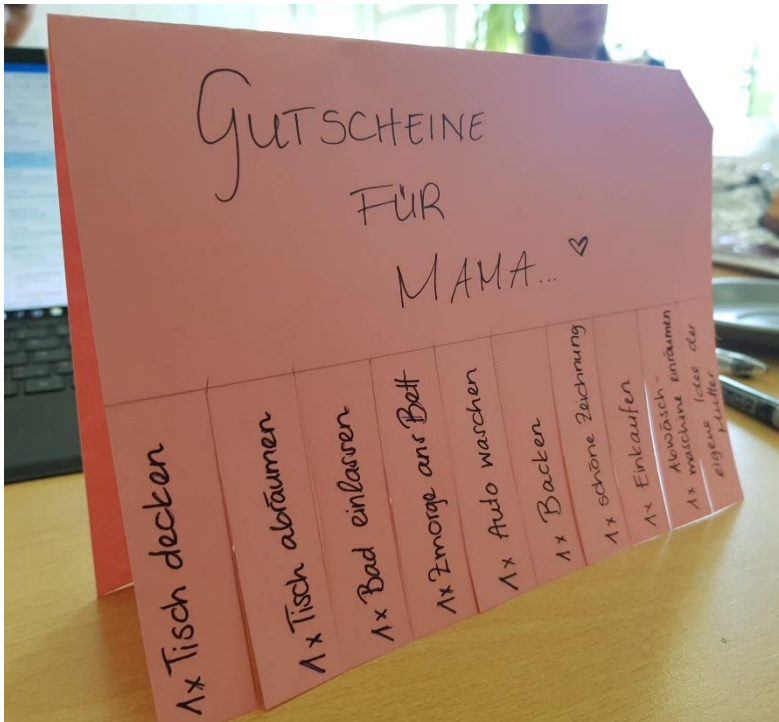 GUTSCHEINE
FÜR
MAMA... ♡
1x Tisch decken
1x Tisch abräumen
1x Bad einlassen
1x Zmorge ans Bett
1x Auto waschen
1x Backen
1x schöne Zeichnung
1x Einkaufen
Abwäsch-
1x maschine einräumen
1x Idee der
eigene Mutter